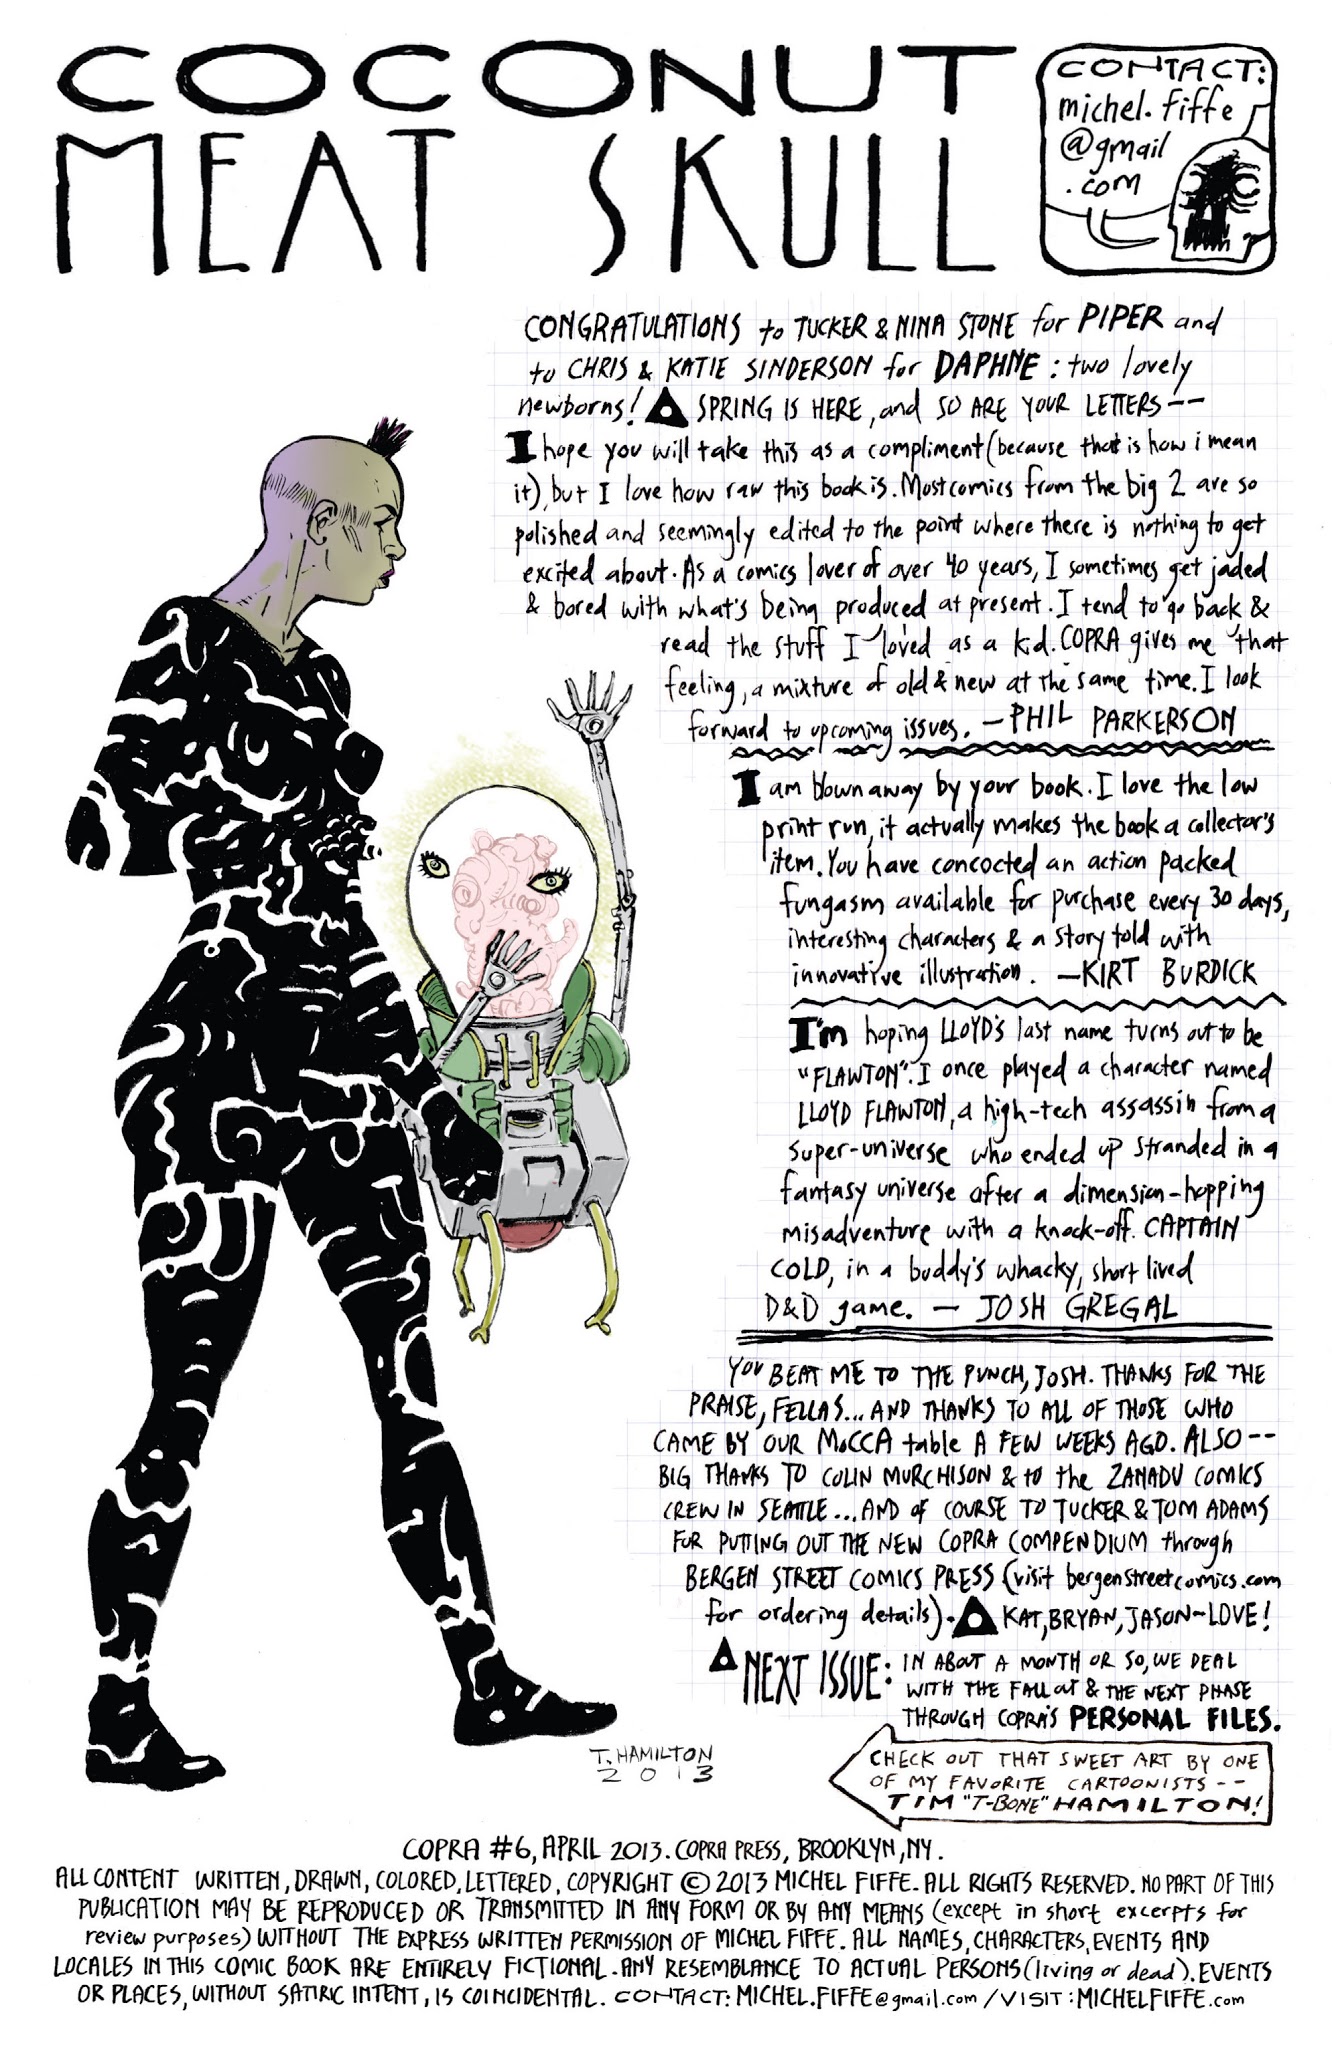 COCONUT
MEAT SKULL
CONTACT:
michel.fiffe
@gmail
.com
CONGRATULATIONS to TUCKER & NINA STONE for PIPER and
to CHRIS & KATIE SINDERSON for DAPHNE: two lovely
newborns! SPRING IS HERE, and SO ARE YOUR LETTERS--
I hope you will take this as a compliment (because that is how i mean
it), but I love how raw this book is. Most comics from the big 2 are so
polished and seemingly edited to the point where there is nothing to get
excited about. As a comics lover of over 40 years, I sometimes get jaded
& bored with what's being produced at present. I tend to go back &
read the stuff I loved as a kid. COPRA gives me that
feeling, a mixture of old & new at the same time. I look
forward to upcoming issues. -PHIL PARKERSON
I am blown away by your book. I love the low
print run, it actually makes the book a collector's
item. You have concocted an action packed
fungasm available for purchase every 30 days,
interesting characters & a story told with
innovative illustration. -KIRT BURDICK
I'm hoping LLOYD'S last name turns out to be
"FLAWTON". I once played a character named
LLOYD FLAWTON, a high-tech assassin from a
super-universe who ended up stranded in a
fantasy universe after a dimension-hopping
misadventure with a knock-off CAPTAIN
COLD, in a buddy's whacky, short lived
D&D game. - JOSH GREGAL
YOU BEAT ME TO THE PUNCH, JOSH. THANKS FOR THE
PRAISE, FELLAS... AND THANKS TO ALL OF THOSE WHO
CAME BY OUR MoCCA table A FEW WEEKS AGO. ALSO--
BIG THANKS TO COLIN MURCHISON & to the ZANADU COMICS
CREW IN SEATTLE... AND OF COURSE TO TUCKER & TOM ADAMS
FOR PUTTING OUT THE NEW COPRA COMPENDIUM through
BERGEN STREET COMICS PRESS (visit bergenstreetcomics.com
for ordering details). KAT, BRYAN, JASON~LOVE!
NEXT ISSUE: IN ABOUT A MONTH OR SO, WE DEAL
WITH THE FALLOUT & THE NEXT PHASE
THROUGH COPRA'S PERSONAL FILES.
T. HAMILTON
2013
CHECK OUT THAT SWEET ART BY ONE
OF MY FAVORITE CARTOONISTS--
TIM "T-BONE" HAMILTON!
COPRA #6, APRIL 2013. COPRA PRESS, BROOKLYN, NY.
ALL CONTENT WRITTEN, DRAWN, COLORED, LETTERED, COPYRIGHT © 2013 MICHEL FIFFE. ALL RIGHTS RESERVED. NO PART OF THIS
PUBLICATION MAY BE REPRODUCED OR TRANSMITTED IN ANY FORM OR BY ANY MEANS (except in short excerpts for
review purposes) WITHOUT THE EXPRESS WRITTEN PERMISSION OF MICHEL FIFFE. ALL NAMES, CHARACTERS, EVENTS AND
LOCALES IN THIS COMIC BOOK ARE ENTIRELY FICTIONAL. ANY RESEMBLANCE TO ACTUAL PERSONS (living or dead). EVENTS
OR PLACES, WITHOUT SATIRIC INTENT, IS COINCIDENTAL. CONTACT: MICHEL.FIFFE@gmail.com / VISIT: MICHELFIFFE.com